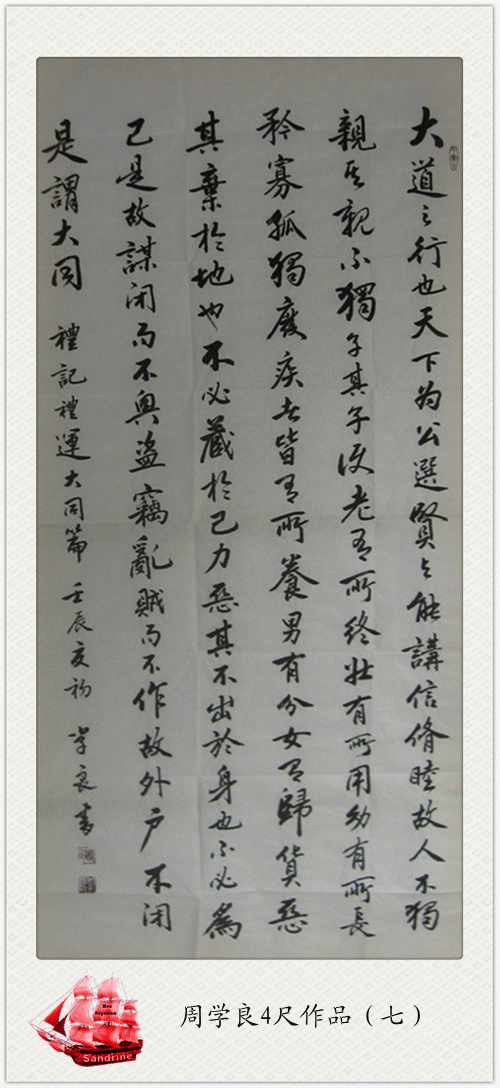 大道之行也天下为公選賢与能講信脩睦故人不獨
親其親不獨子其子使老有所終壯有所用幼有所長
矜寡孤獨廢疾者皆有所養男有分女有歸貨惡
其棄於地也不必藏於己力惡其不出於身也不必為
己是故謀闭而不興盗竊亂賊而不作故外户不闭
是謂大同 禮記禮運大同篇 壬辰夏初 学良書
Sandrine
周学良4尺作品（七）